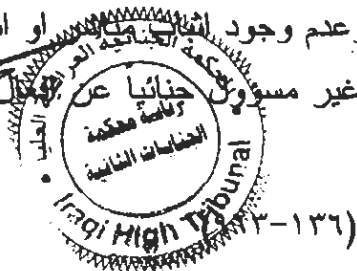 وعدم وجود اثبات او
غير مسؤول جنائياً عن
المحكمة الجنائية العراقية العليا
رئاسة محكمة
الجنايات الثانية
Iraqi High Tribunal
(١٣٦-